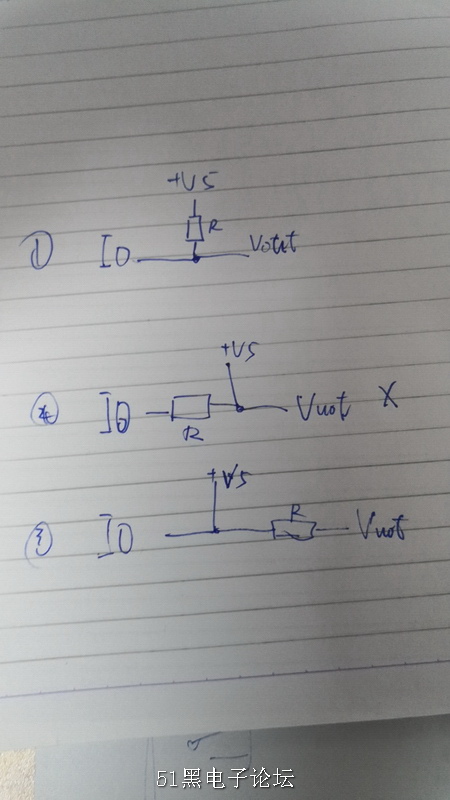 +V5
R
① IO Vout
+V5
② IO Vuot X
R
+V5
R
③ IO Vuot
51黑电子论坛